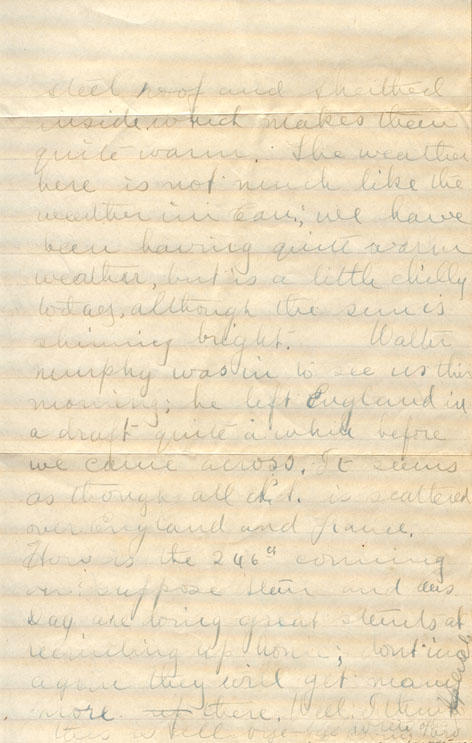 steel roof and sheithed
inside, which makes them
quite warm. The weather
here is not much like the
weather in Can; we have
been having quite warm
weather, but is a little chilly
today, although the sun is
shinning bright. Walter
Murphy was in to see us this
morning; he left England in
a draft quite a while before
we came across. It seems
as though all is scattered
over England and France.
How is the 246th coming
on? suppose and
Day are doing great stunts at
recruiting up home; dont
again they will get many
more up there. Well I
this will bye-bye